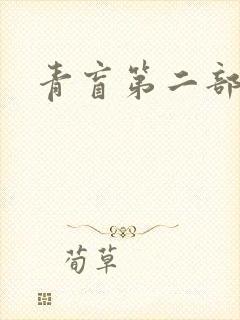 青盲第二部
荀草